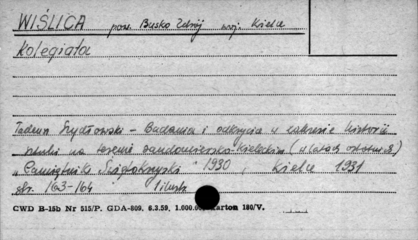 WIŚLICA pow. Busko Zdrój woj. Kielce
Kolegiata
Tadeusz Szydłowski - Badania i odkrycia w zakresie historii
sztuki na terenie sandomiersko-kieleckim (w latach ostatnich)
"Pamiętnik Świętokrzyski" 1930, Kielce 1931
str. 163-164 1 ilustr.
CWD B-15b Nr 515/P. GDA-809. 6.3.59. 1.000.0 karton 180/V.